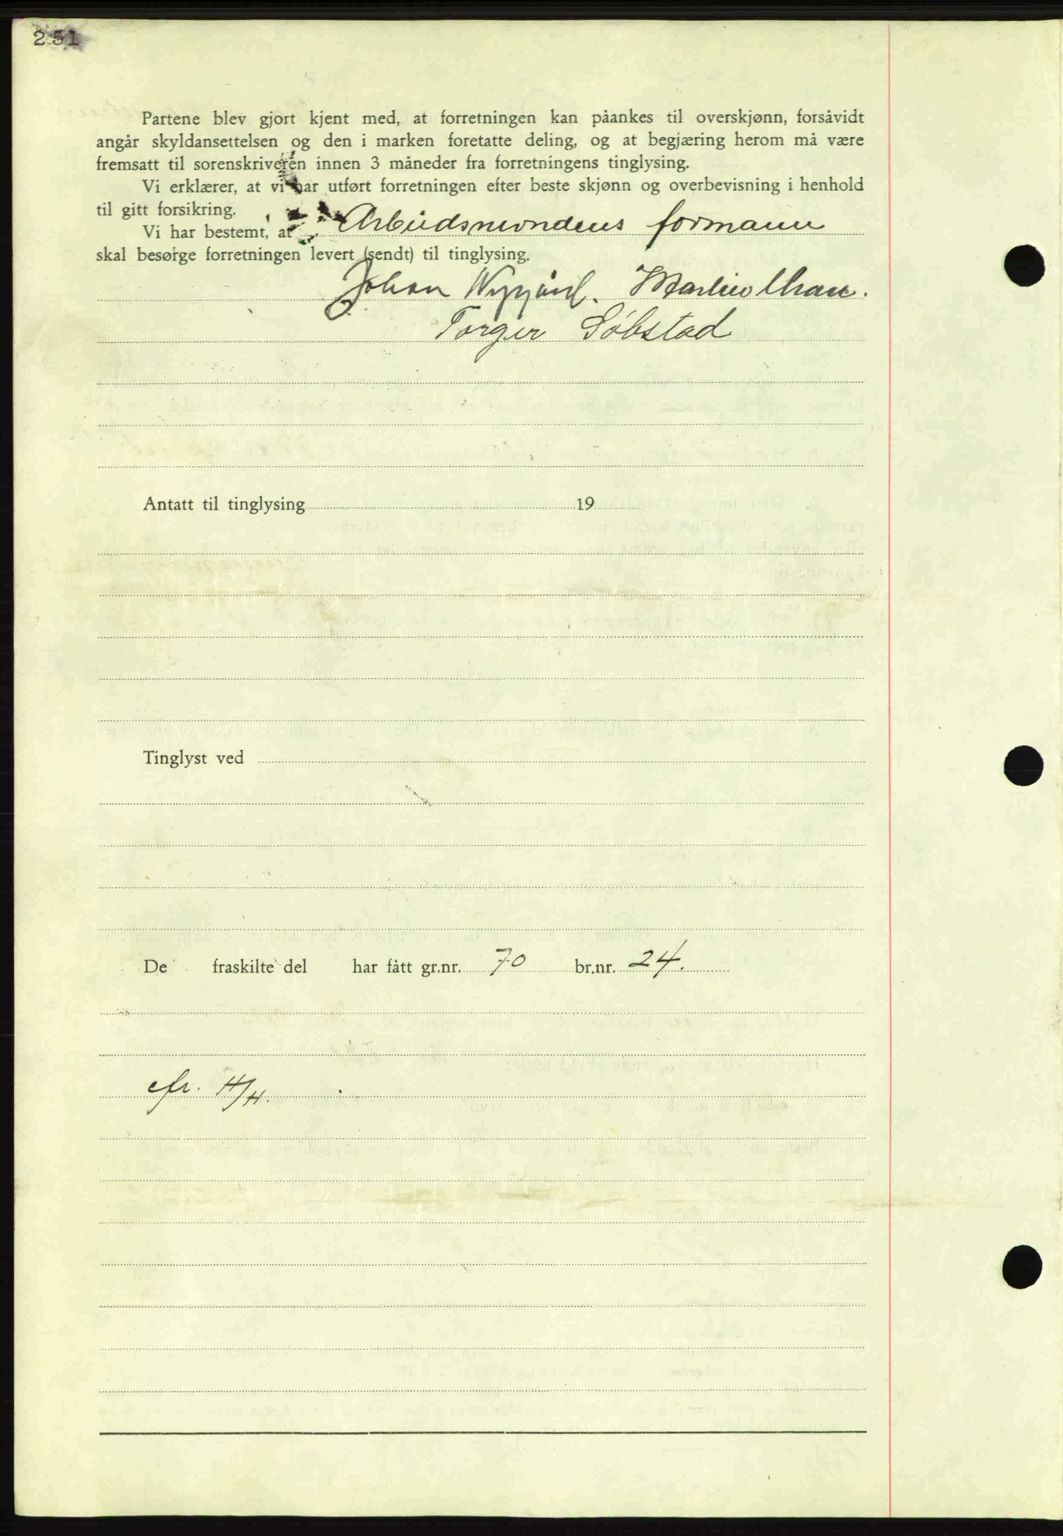 251
Partene blev gjort kjent med, at forretningen kan påankes til overskjønn, forsåvidt
angår skyldansettelsen og den i marken foretatte deling, og at begjæring herom må være
fremsatt til sorenskriveren innen 3 måneder fra forretningens tinglysing.
Vi erklærer, at vi har utført forretningen efter beste skjønn og overbevisning i henhold
til gitt forsikring.
Vi har bestemt, at Arbeidsnevndens formann
skal besørge forretningen levert (sendt) til tinglysing.
Johan Nygård.
Torger Søbstad
Antatt til tinglysing 19
Tinglyst ved
De fraskilte del har fått gr.nr. 70 br.nr. 24.
cfr. H/H.